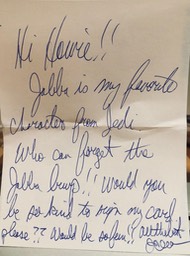 Hi Howie!!
Jabba is my favorite
character from Jedi
Who can forget the
Jabba !! Would you
be so kind to sign my card
please?? Would be so fun!! All the best